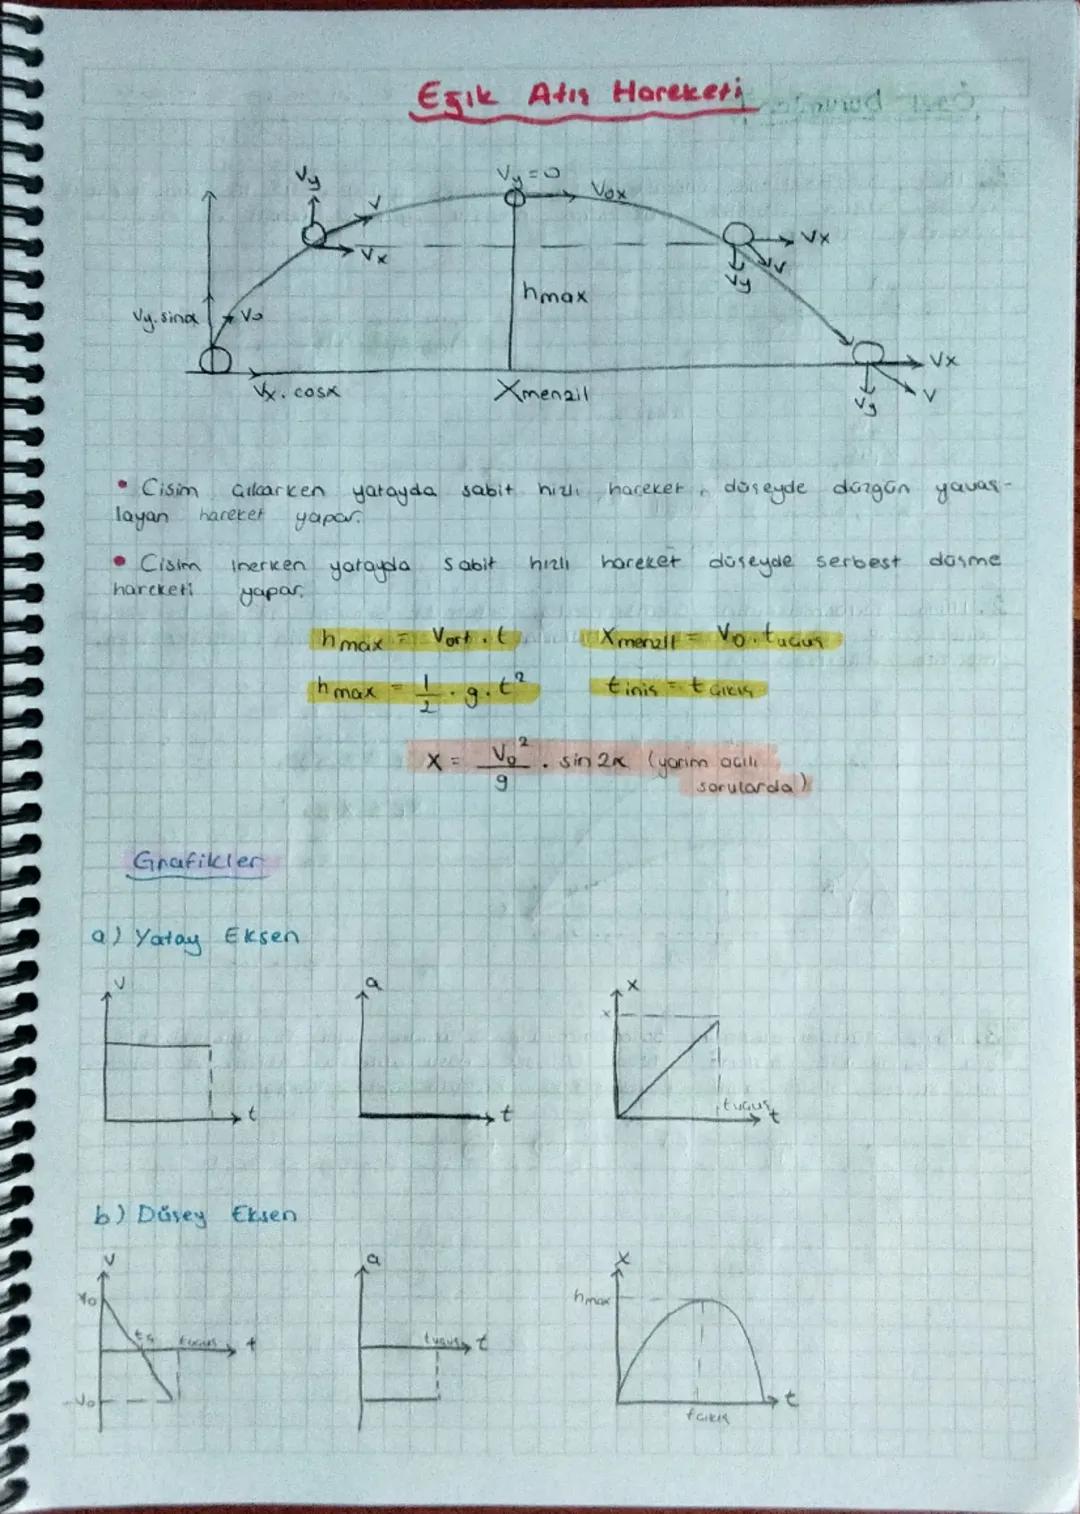 Eğik Atış Hareketi
Vy
V
Vx
Vy = 0
V0x
Vx
V
Vy
hmax
Vy. sinα
V0
Vx. cosα
Xmenzil
Vx
V
Vy
• Cisim çıkarken yatayda sabit hızlı hareket, düşeyde düzgün yavaş-
layan hareket yapar.
• Cisim inerken yatayda sabit hızlı hareket düşeyde serbest düşme
hareketi yapar.
hmax = Vort . t
Xmenzil = V0 . tuçuş
hmax = 1/2 . g . t²
tiniş = tçıkış
X = V0²/g . sin2α (yarım açılı
sorularda)
Grafikler
a) Yatay Eksen
V
t
a
t
x
x
tuçuş
t
b) Düşey Eksen
V
V0
tç
tuçuş
t
-V0
a
tuçuş
t
x
hmax
tçıkış
t